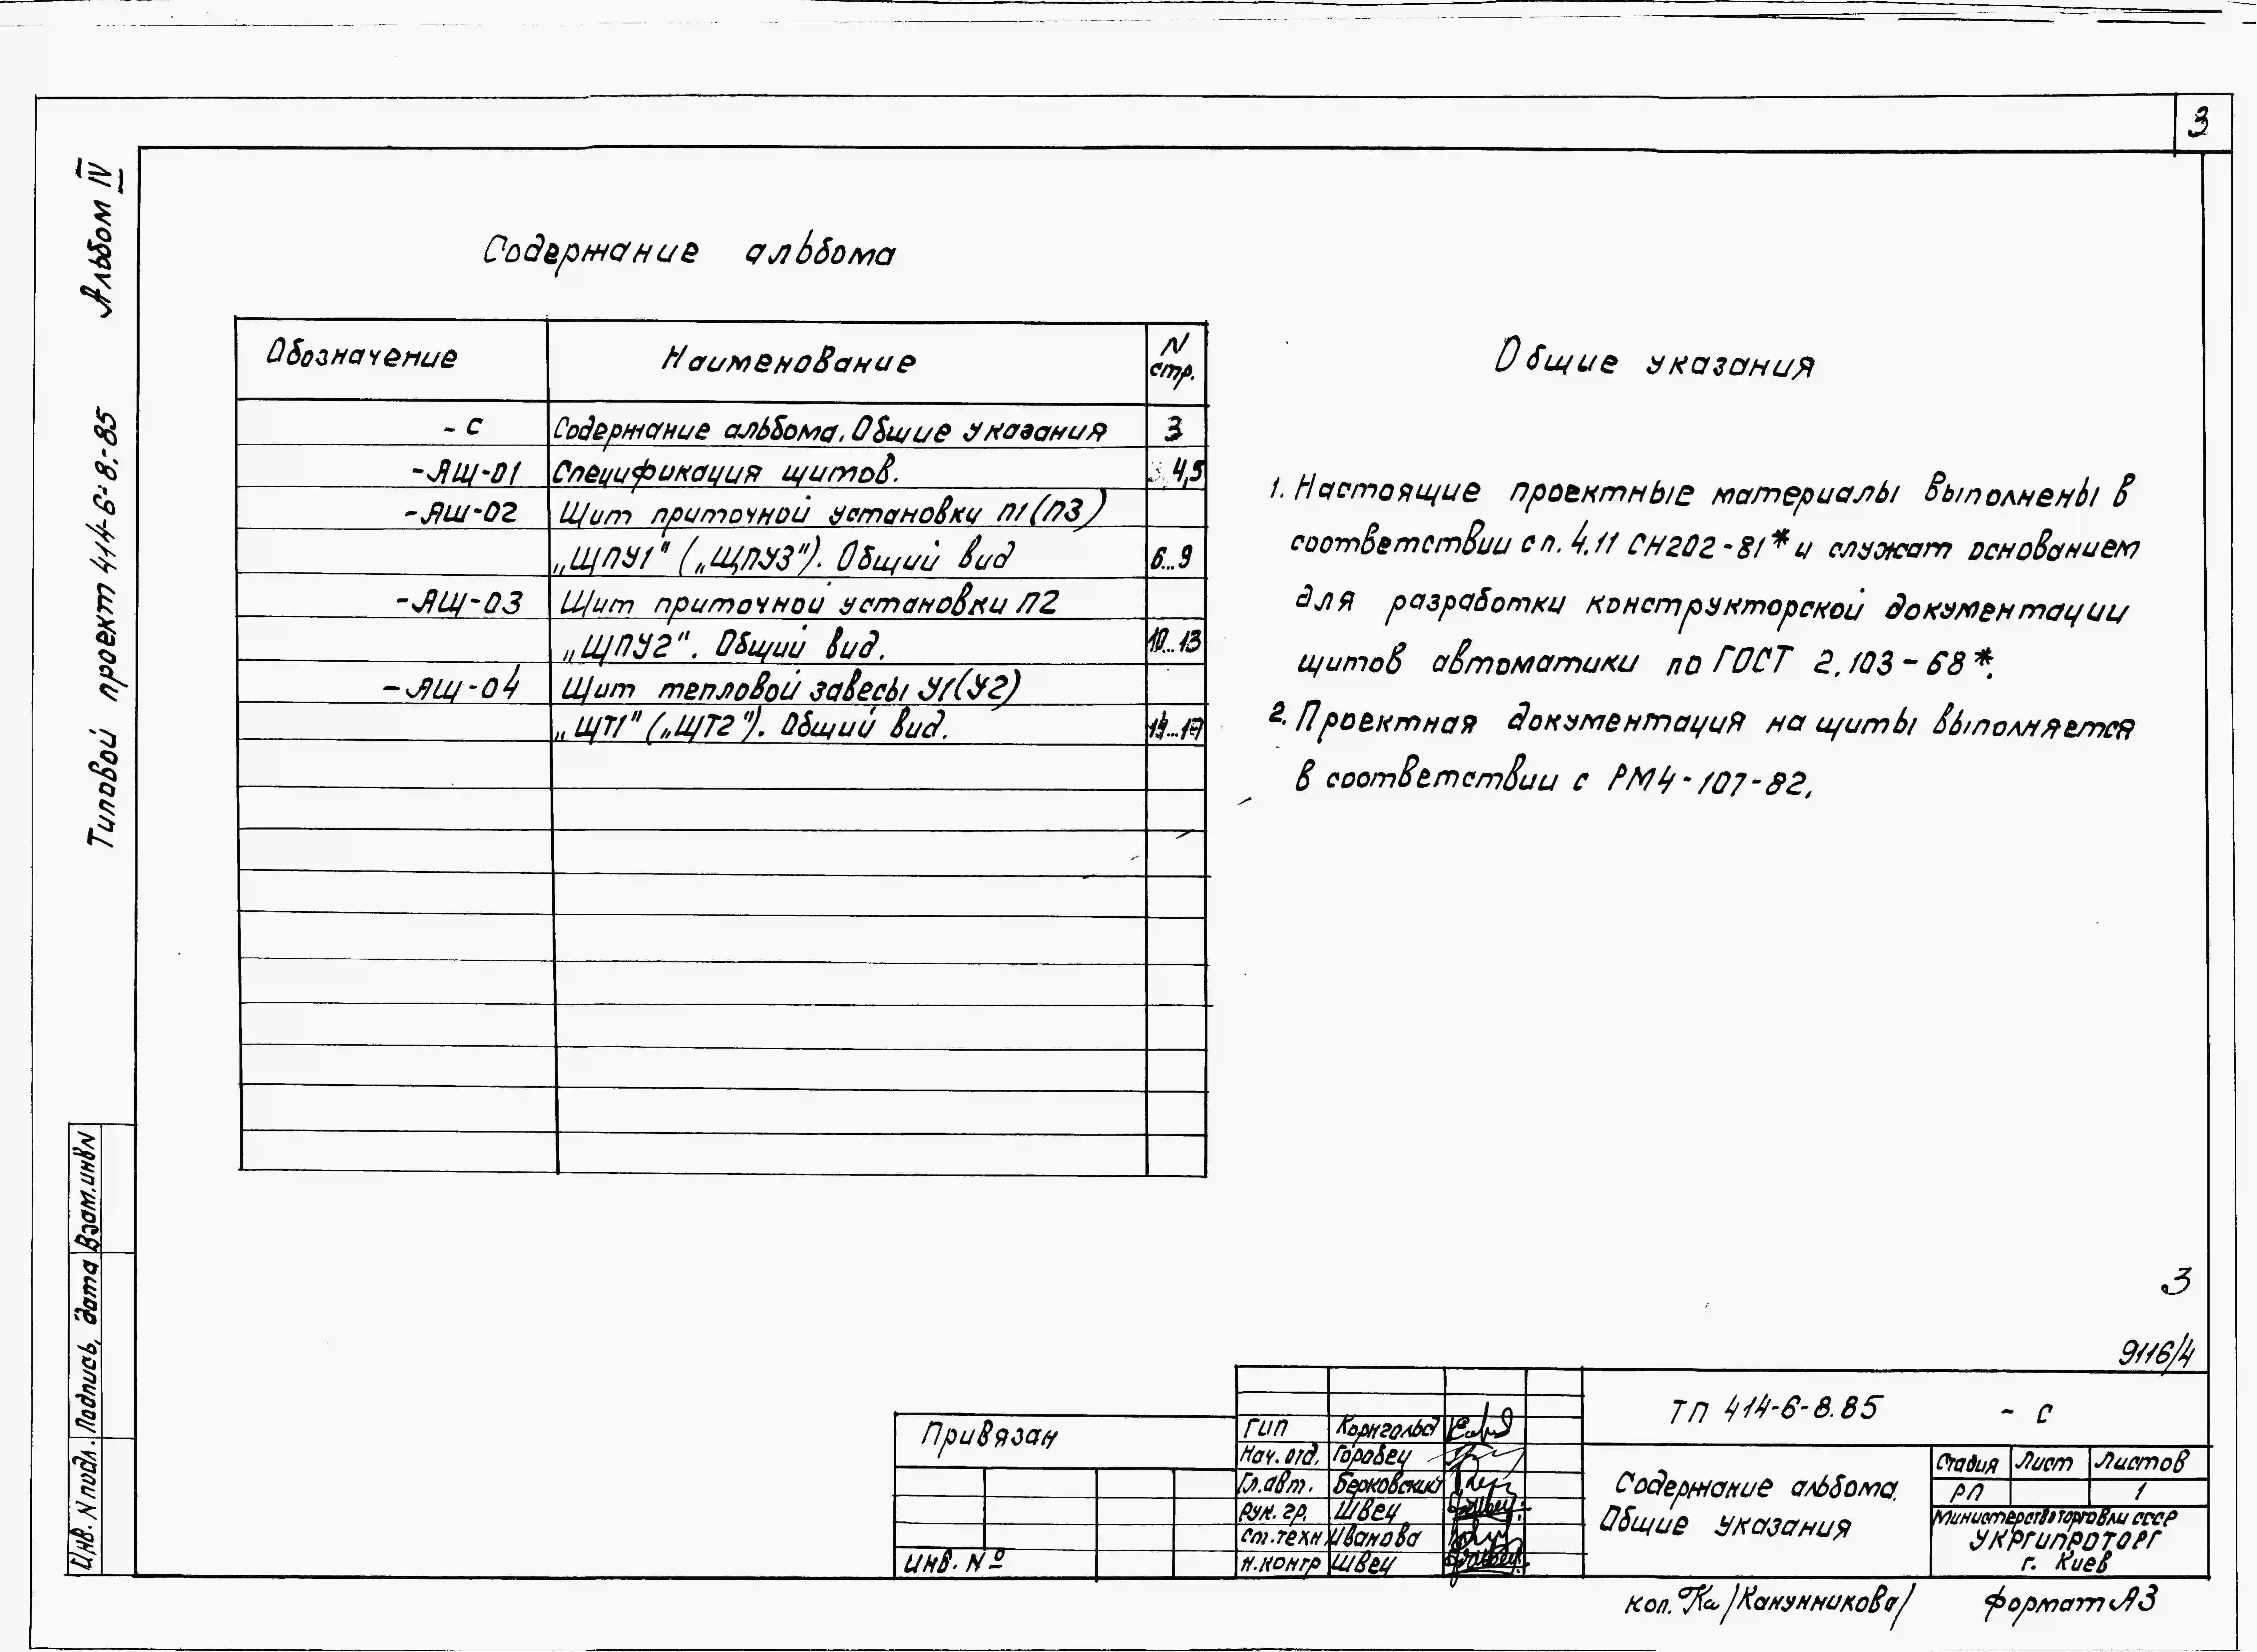 3
Альбом IV
Типовой проект 414-6-8.85
Содержание альбома
Обозначение Наименование N стр.
- С Содержание альбома. Общие указания 3
-АЩ-01 Спецификация щитов. 4,5
-АЩ-02 Щит приточной установки П1(П3)
„ЩПУ1" („ЩПУ3"). Общий вид 6...9
-АЩ-03 Щит приточной установки П2
„ЩПУ2". Общий вид. 10...13
-АЩ-04 Щит тепловой завесы У1(У2)
„ЩТ1" („ЩТ2"). Общий вид.
Общие указания
1. Настоящие проектные материалы выполнены в
соответствии с п. 4.11 СН202-81* и служат основанием
для разработки конструкторской документации
щитов автоматики по ГОСТ 2.103-68*.
2. Проектная документация на щиты выполняется
в соответствии с РМ4-107-82.
Инв. N подл. Подпись, дата Взам.инвN
3
9116/4
Привязан
Инв. №
ГИП Корнгольд
Нач. отд. Горобец
Гл.авт. Берковский
Рук. гр. Швец
Ст.техн Иванова
Н.контр Швец
ТП 414-6-8.85 - С
Содержание альбома.
Общие указания
Стадия Лист Листов
РП 1
Министерство торговли СССР
УКРГИПРОТОРГ
г. Киев
коп. /Канунникова/ формат А3